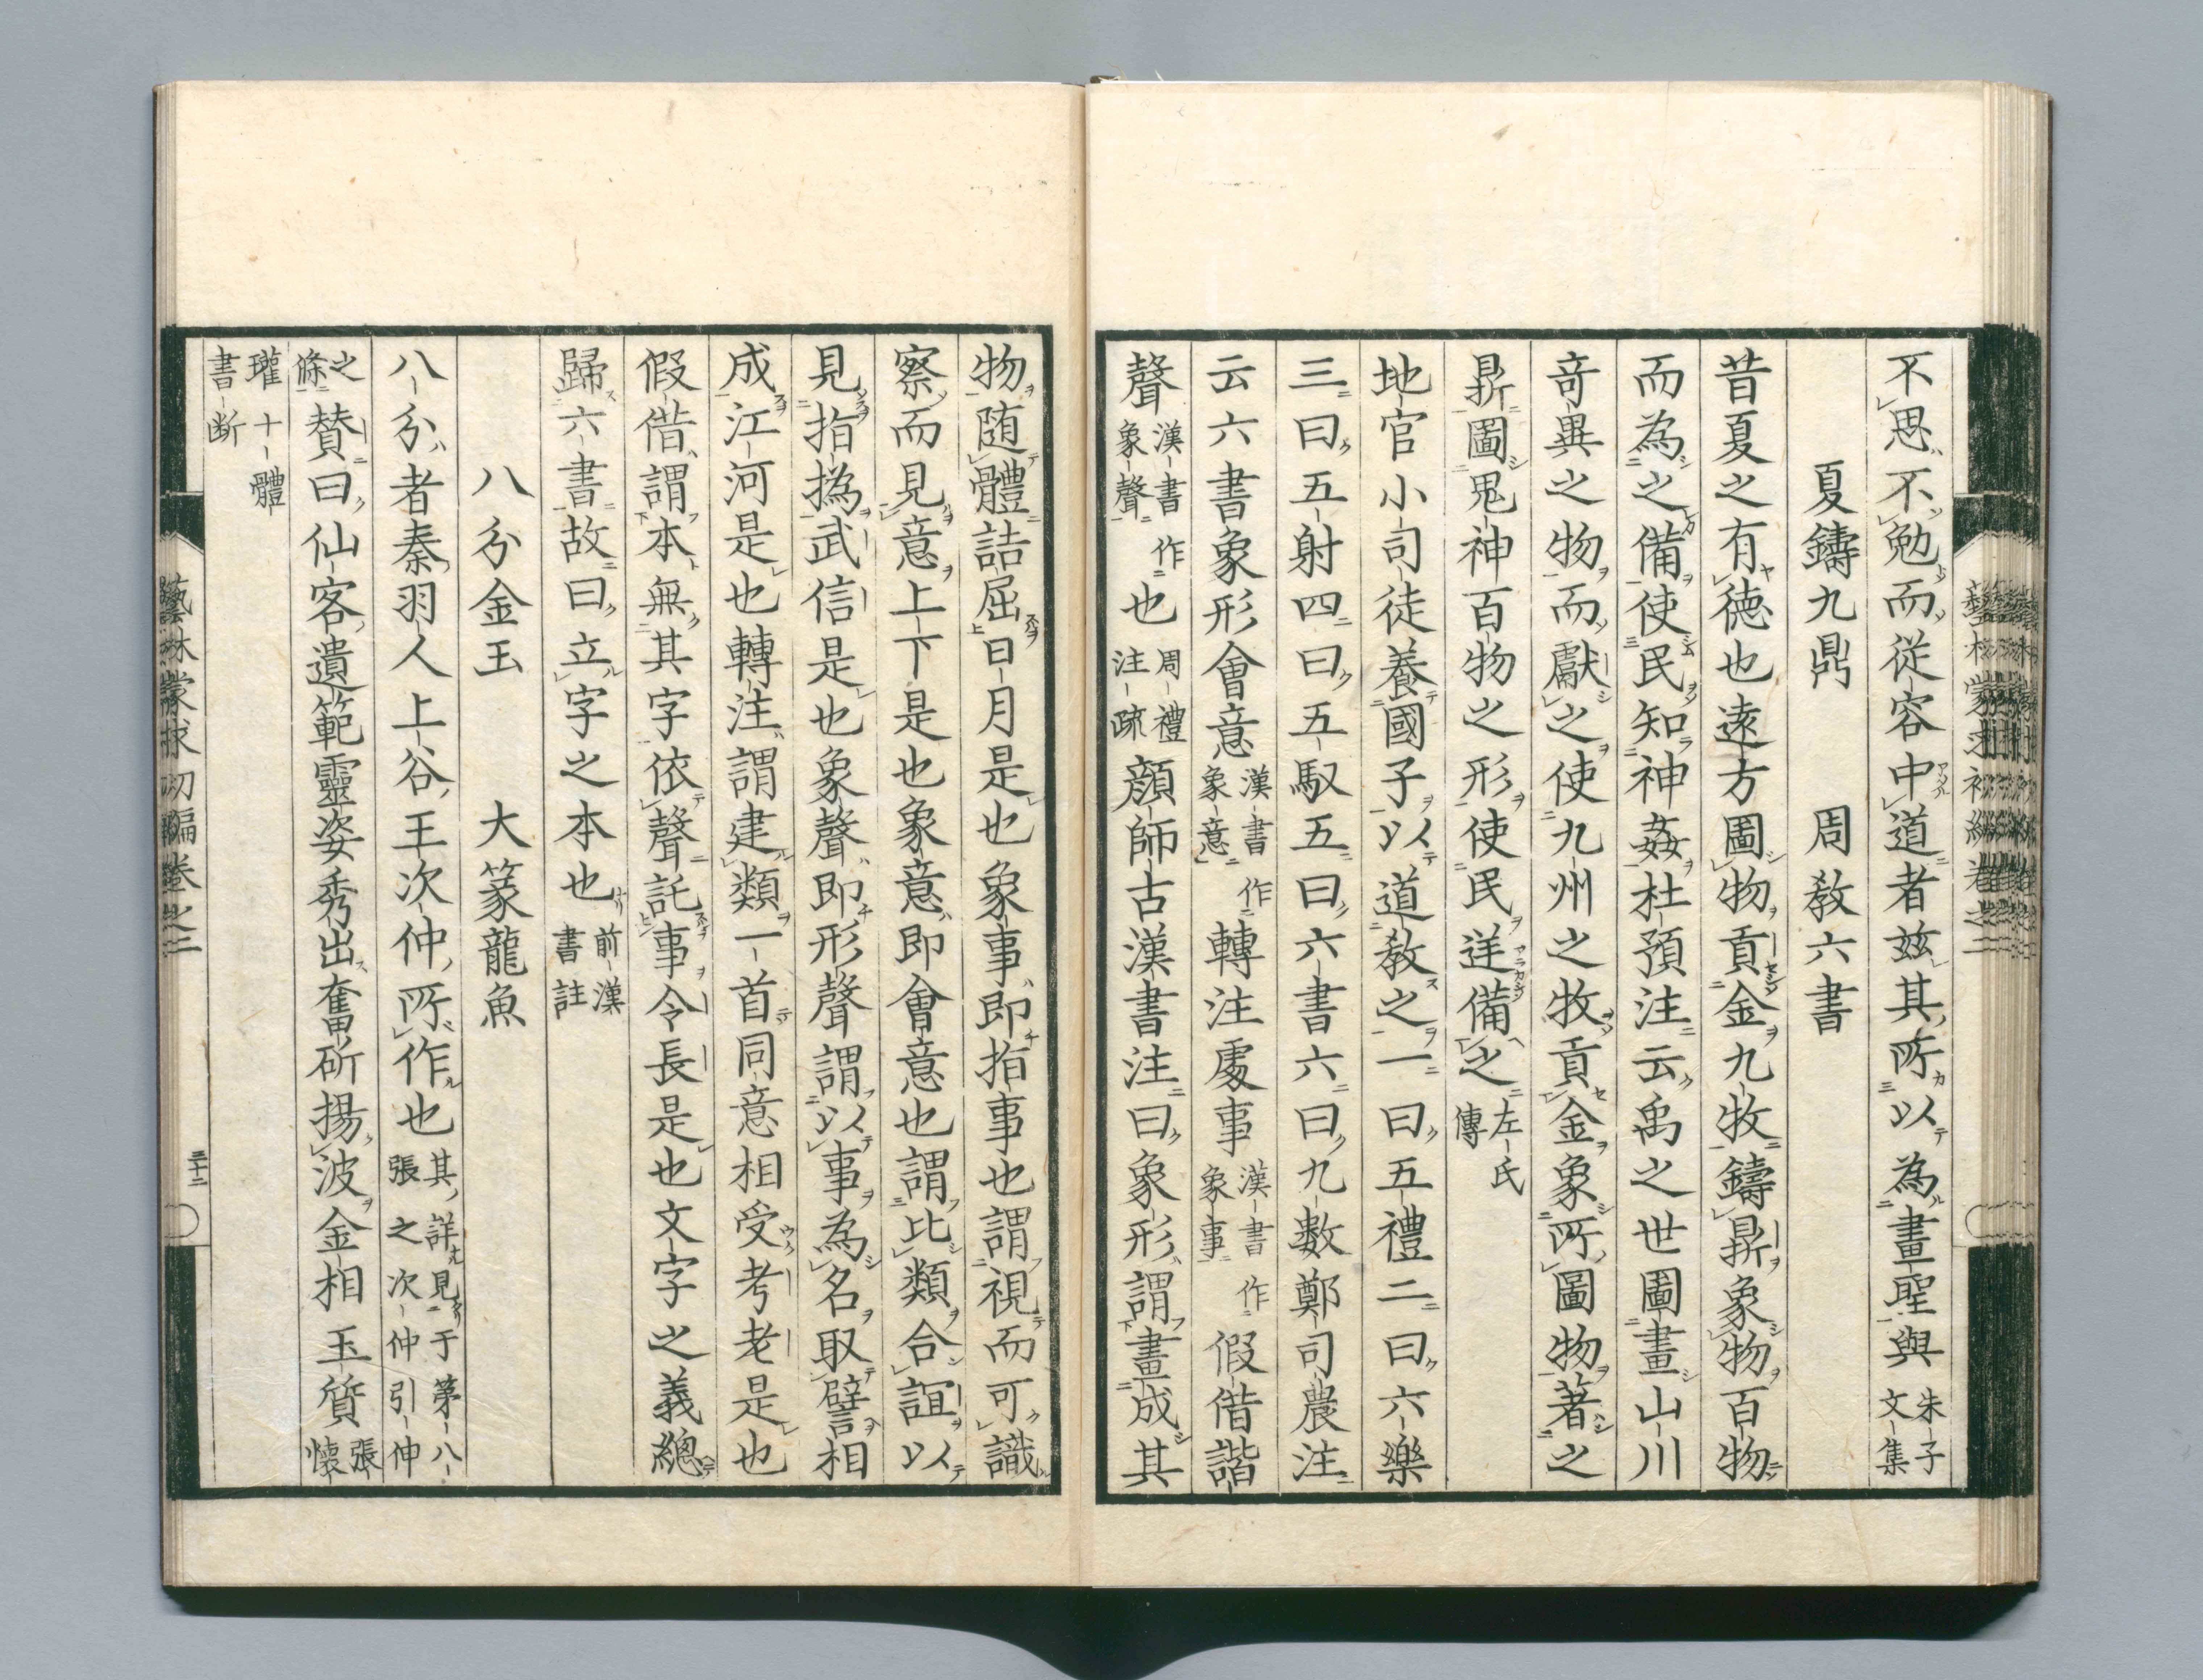 不思不勉而從容中道者玆其所以為畫聖與朱子文集
夏鑄九鼎　周教六書
昔夏之有德也遠方圖物貢金九牧鑄鼎象物百物
而為之備使民知神姦杜預注云禹之世圖畫山川
奇異之物而獻之使九州之牧貢金象所圖物著之
鼎圖鬼神百物之形使民逆備之左氏傳
地官小司徒養國子以道教之一曰五禮二曰六樂
三曰五射四曰五馭五曰六書六曰九數鄭司農注
云六書象形會意漢書作象意轉注處事漢書作象事假借諧
聲漢書作象聲也周禮注疏顏師古漢書注曰象形謂畫成其
物随體詰屈日月是也象事即指事也謂視而可識
察而見意上下是也象意即會意也謂比類合誼以
見指撝武信是也象聲即形聲謂以事為名取譬相
成江河是也轉注謂建類一首同意相受考老是也
假借謂本無其字依聲託事令長是也文字之義總
歸六書故曰立字之本也前漢書註
八分金玉　大篆龍魚
八分者秦羽人上谷王次仲所作也其詳見于第八張之次仲引伸
之條賛曰仙客遺範靈姿秀出奮斫揚波金相玉質張懷
瓘十體書断
藝林蒙求初編卷之二
三十二